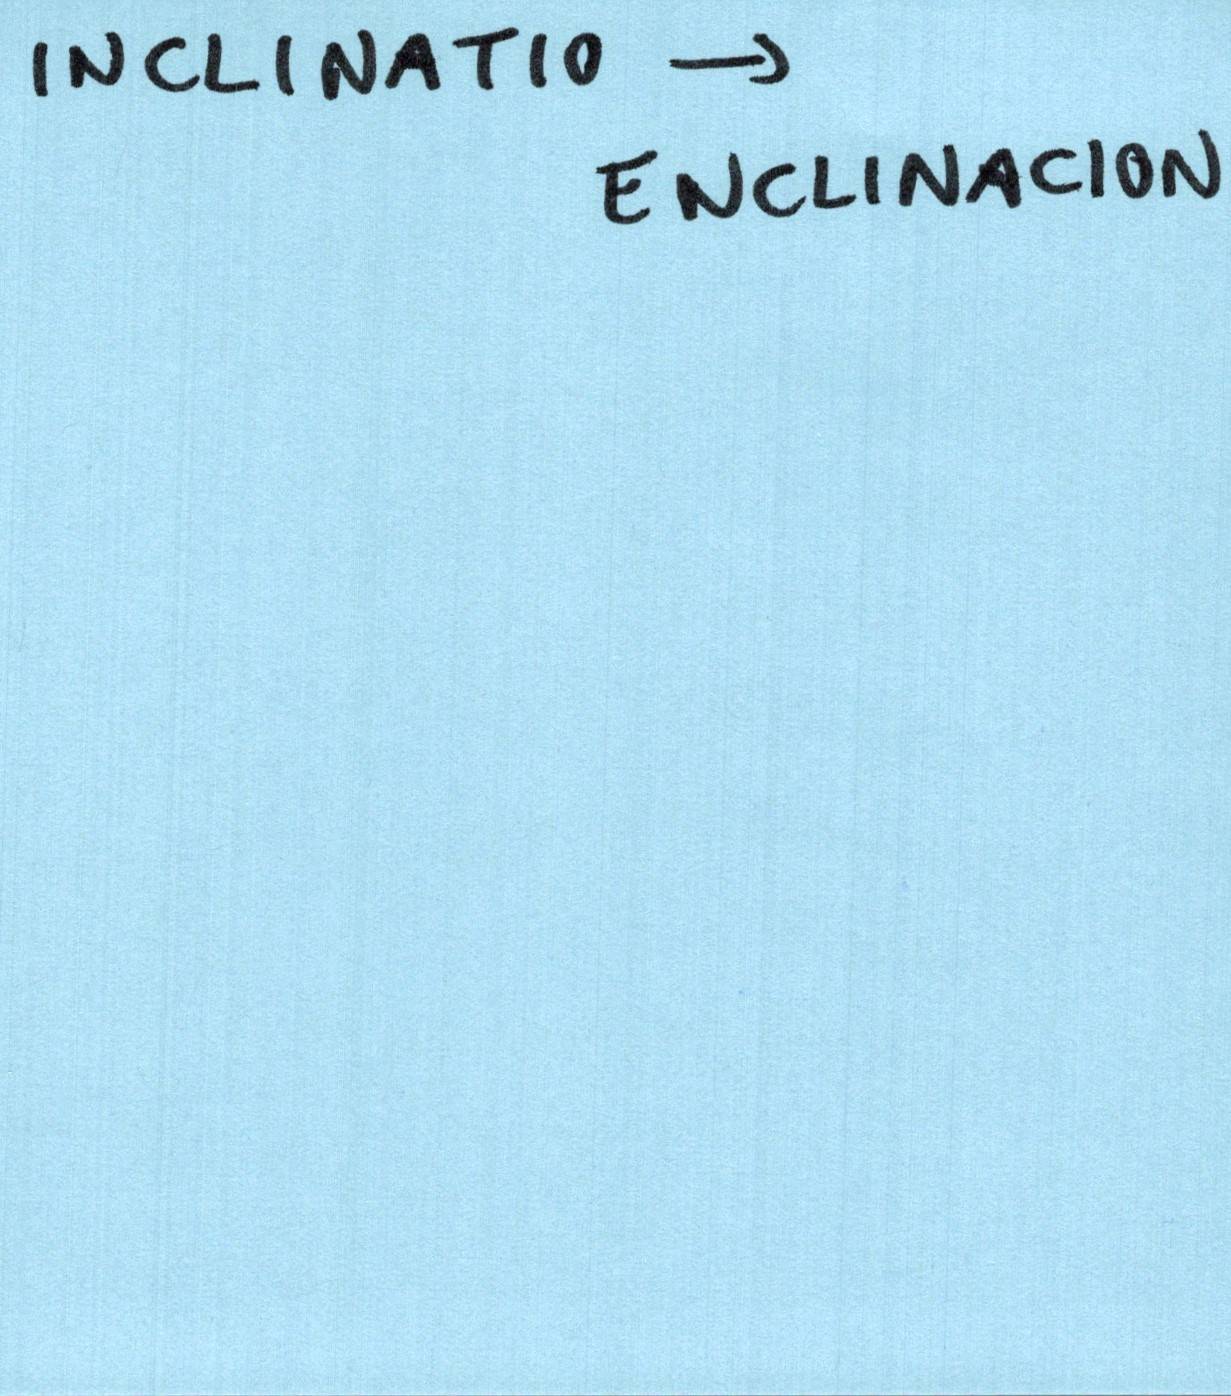 INCLINATIO →
ENCLINACION